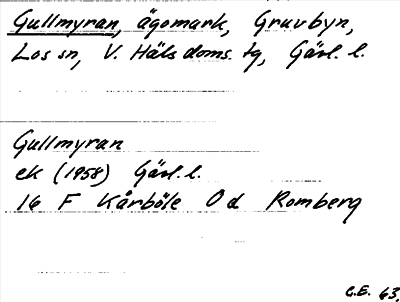 Gullmyran, ägomark, Gruvbyn,
Los sn, V. Häls doms. tg, Gävl. l.
Gullmyran
ek (1958) Gävl. l.
16 F Kårböle Od Romberg
G.E. 63.